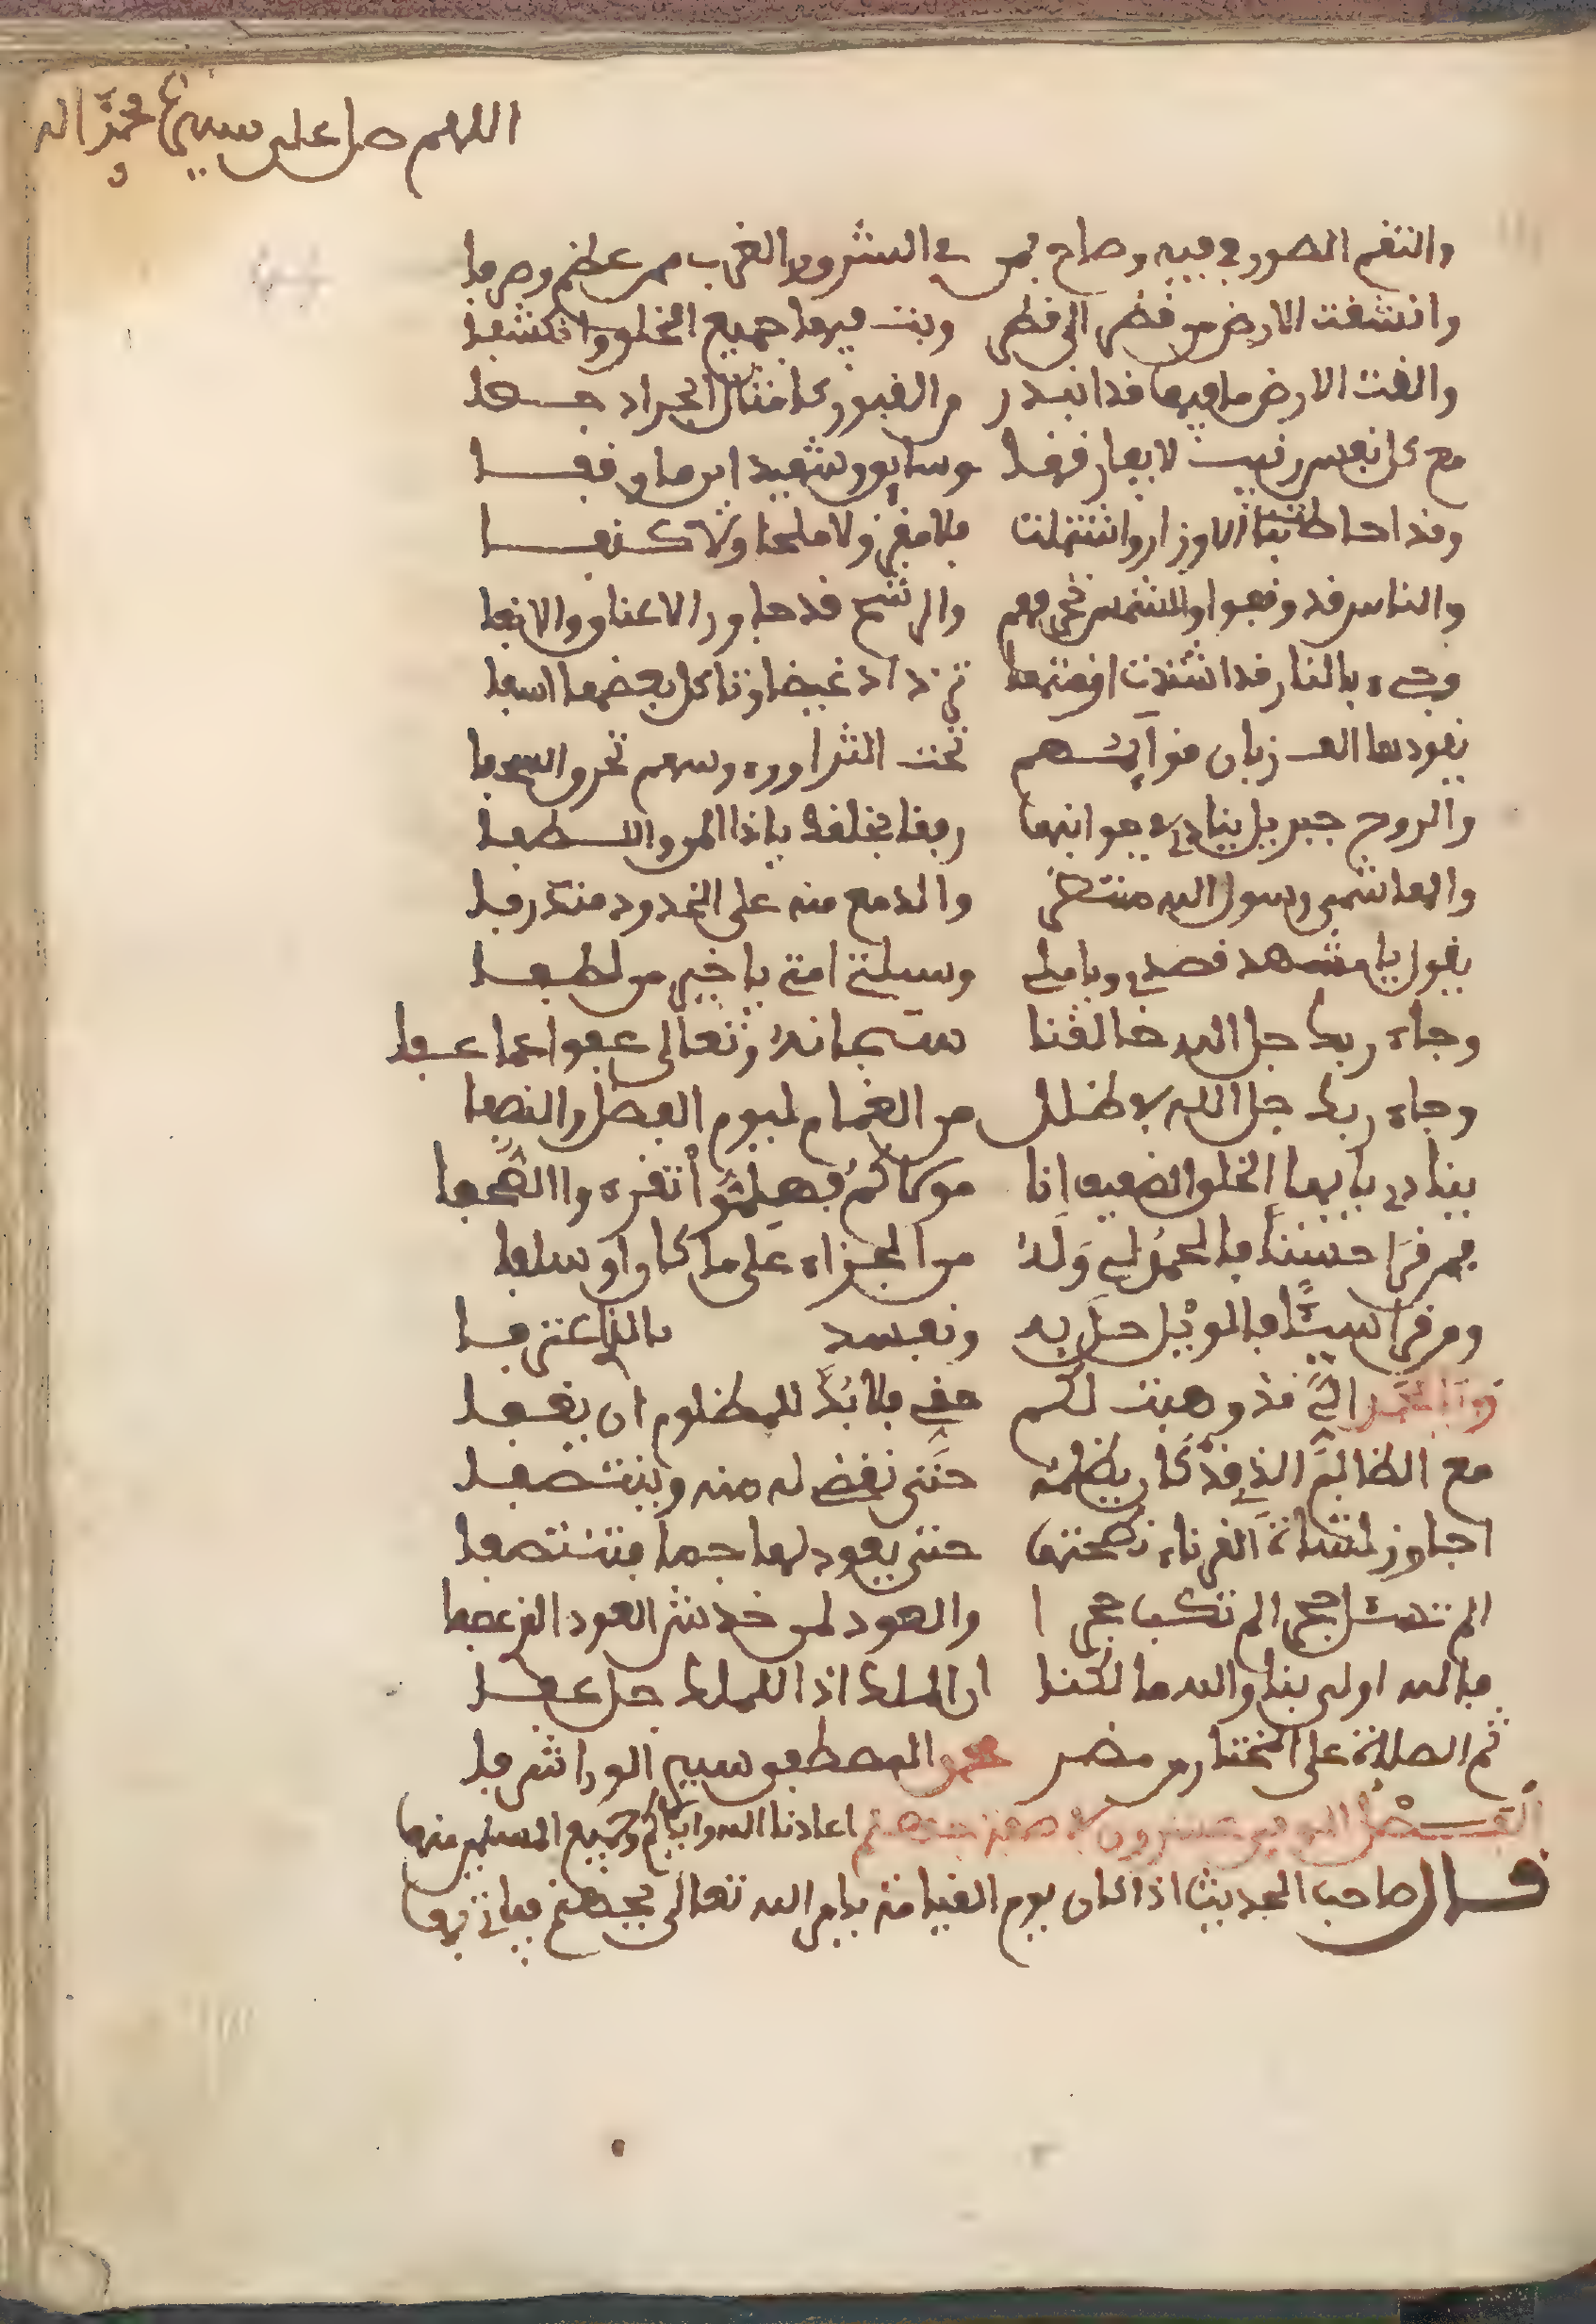 اللهم صل على سيدنا محمد واله
والتقم الصور في فيه وصاح بمن في الشرق والغرب من عظم وصرفا
وانشقت الارض من قطر الى قطر وبث فيها جميع الخلق وانكشفا
والقت الارض ما فيها قد ابتدر من القبور كامثال الجراد جفا
مع كل نفس رقيب لا يفارقها وسايق وشهيد اين ما وقفا
وقد احاطت بنا الاوزار واشتملت فلا مفر ولا ملجا ولا كنفا
والناس قد وقفوا والشمس تحرقهم والرشح قد جاوز الاعناق والانفا
وجيء بالنار قد اشتدت افمتها تزداد غيضا وتاكل بعضها اسفا
يقودها الف زبان تحت الثرا وروسهم تخرق السجفا
والروح جبريل ينادي في جوانبها رفقا بخلقك ياذا المن واللطفا
والهاشمي رسول الله منتظر والدمع منه على الخدود منذرفا
يقول يا مقصدي ويا املي وسيلتي امتي يا خير من لطفا
وجاء ربك جل الله خالقنا سبحانه وتعالى عفوا عما عفا
وجاء ربك جل الله في ظلل من الغمام ليوم الفصل والنصفا
ينادي يا ايها الخلق الضعيف انا موكلكم فهلموا انقرءوا الصحفا
فمن قرا حسنا فالحمد لي وله من الجزاء على ما كان او سلفا
ومن قرا سيئا فالويل حل به ونفسه بالذل عترفا
قد وهبت لكم حقي فلا بد للمظلوم ان يقفا
مع الظالم الذي قد كان يظلمه حتى نقض له منه وينتصفا
اجاوز لشاة القرناء نطحتها حتى يعود لها جما فتنتصفا
الم حجر الم نكب حجرا والعود لمن خدش العود الذي عصفا
فالله اولى بنا والله مالكنا ان المليك اذا المليك جل عفا
ثم الصلاة على المختار من مضر محمد المصطفى سيد الورا شرفا
الفصل الموفي عشرون في صفة جهنم اعاذنا الله واياكم وجميع المسلمين منها
قال صاحب الحديث اذا كان يوم القيامة يامر الله تعالى بجهنم فياتي بها